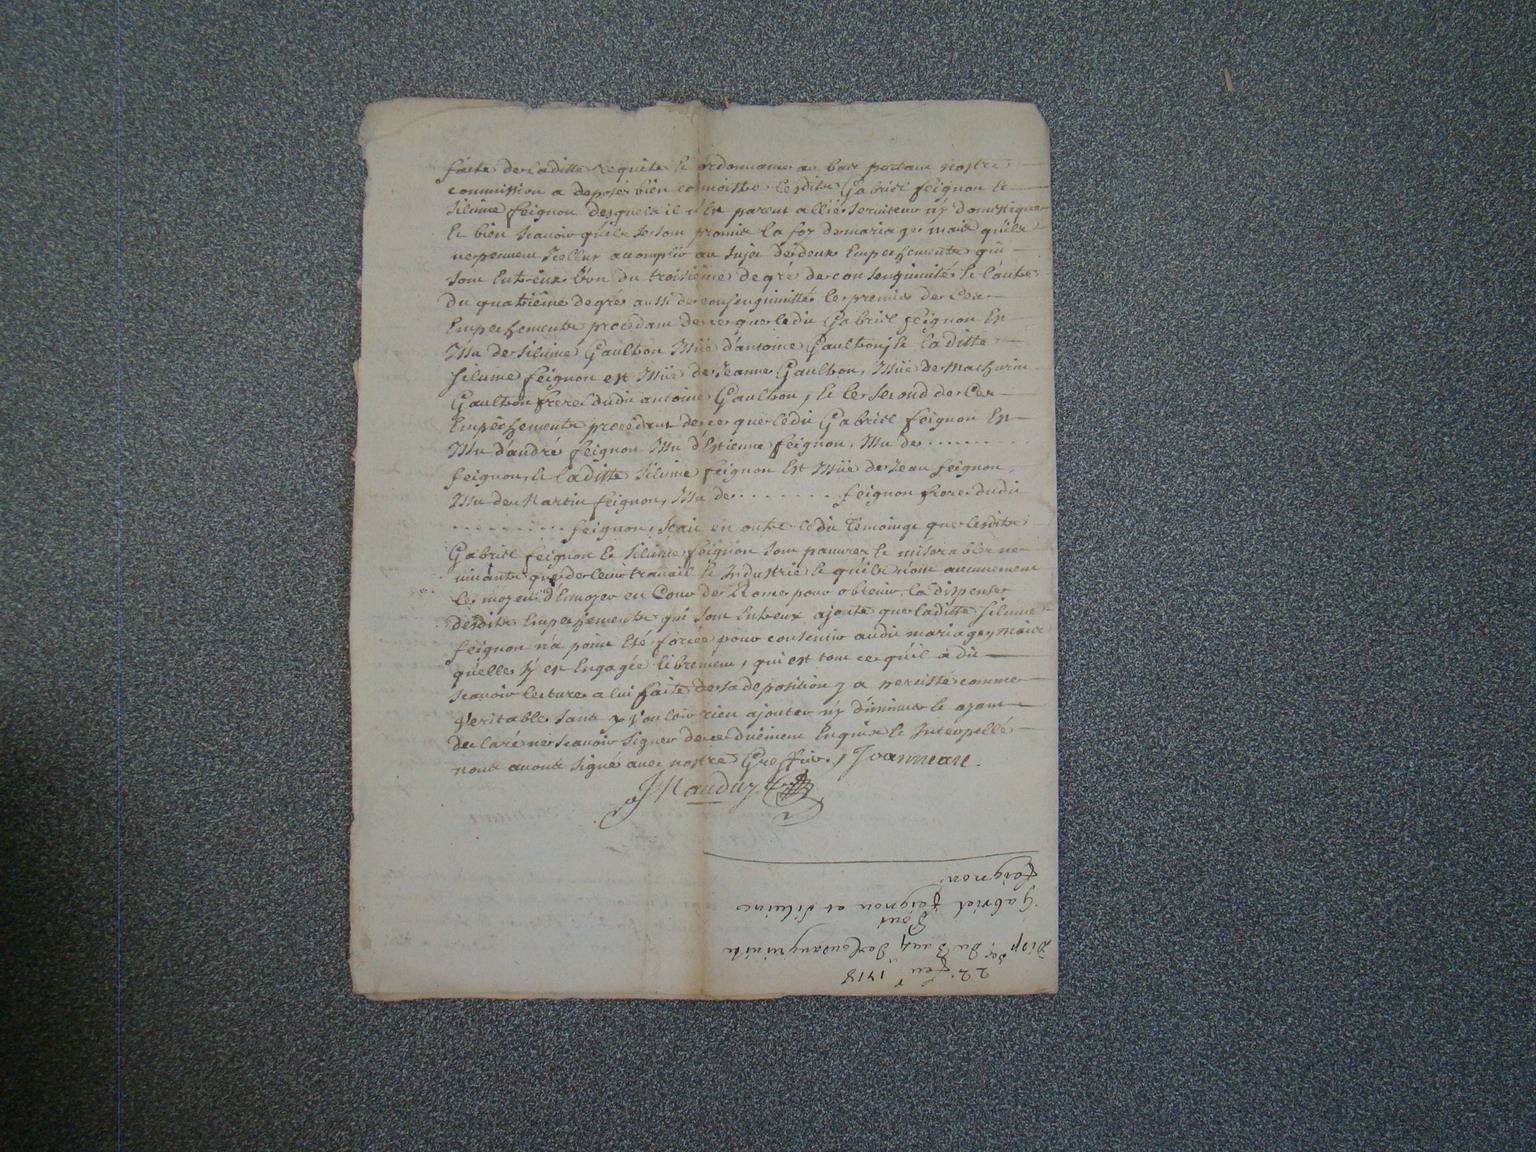 faite de la ditte requeste et ordonnance au bas portant nostre
commission a deposé bien connoistre lesdits Gabriel feignon et
Silvine feignon desquels il n'est parent allié serviteur ny domestique
et bien scavoir qu'ils se sont promis la foy de mariage mais qu'ils
ne peuvent icelluy accomplir au sujet de deux Empeschements qui
sont Entreeux l'un du troisième degré de consenguinité et l'autre
du quatrième degré aussi de consenguinitté le premier de Ces
Empeschements procedant de ce que ledit Gabriel feignon Est
Issu de Silvine Gaultron Issüe d'antoine Gaultron, et laditte
Silvine feignon est Issüe de Jeanne Gaultron, Issüe de Mathurin
Gaultron frere dudit antoine Gaultron, et le second de Ces
Empeschements procedant de ce que ledit Gabriel feignon Est
Issu d'andré feignon Issu d'Estienne feignon, Issu de ........
feignon, et laditte Silvine feignon Est Issüe de Jean feignon,
Issu de Martin feignon, Issu de ........ feignon frere dudit
........... feignon, scait en outre ledit temoing que lesdits
Gabriel feignon et Silvine feignon sont pauvres et miserables ne
vivants que de leur travail et Industrie et qu'ils n'ont aucunement
les moyens d'Envoyer en Cour de Rome pour obtenir la dispense
desdits Empeschements qui sont Entreux ajoute que laditte Silvine
feignon n'a point Esté forcée pour consentir audit mariage, mais
qu'elle s'y est Engagée librement, qui est tout ce qu'il a dit
scavoir lecture a lui faite de sa deposition y a persisté comme
veritable sans y vouloir rien ajouter ny diminuer et ayant
declaré ne scavoir signer de ce duement Enquis et Interpellé
nous avons signé avec nostre Greffier, Joanneau.
Nauduy
22e feur 1718
Disp ses du 3 au 4 de Consanguinité
pour
Gabriel feignon et Silvine
feignon.